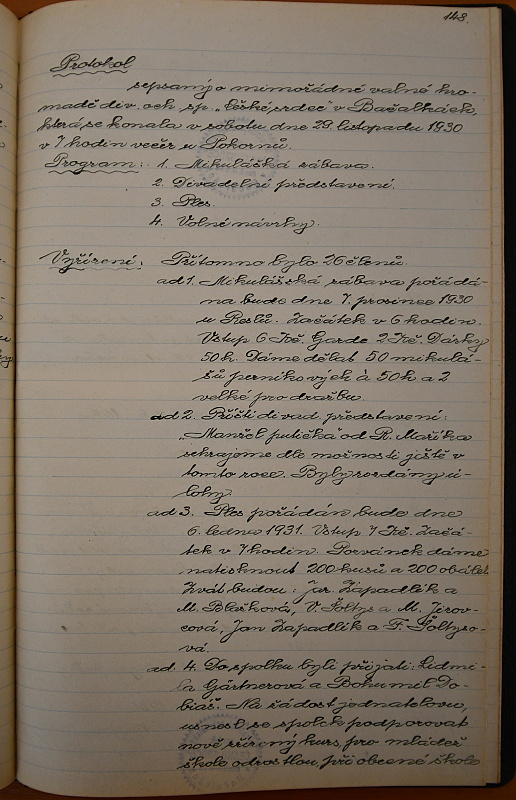 148.
Protokol
sepsaný o mimořádné valné hro-
madě div. och. sp. „České srdce" v Bačalkách,
která se konala v sobotu dne 29. listopadu 1930
v 7 hodin večer u Pokornů.
Program: 1. Mikulášská zábava.
2. Divadelní představení.
3. Ples.
4. Volné návrhy.
Vyřízení: Přítomno bylo 26 členů.
ad 1. Mikulášská zábava pořádá-
na bude dne 7. prosince 1930
u Reslů. Začátek v 6 hodin.
Vstup 6 Kč. Garde 2 Kč. Dárky
50 h. Dáme dělat 50 mikulá-
šů perníkových à 50 h a 2
velké pro dražbu.
ad 2. Příští divad. představení:
„Manžel putička" od R. Mařík a
sehrajeme dle možnosti ještě v
tomto roce. Byly rozdány ú-
lohy.
ad 3. Ples pořádán bude dne
6. ledna 1931. Vstup 7 Kč. Začá-
tek v 7 hodin. Pozvánek dáme
natisknout 200 kusů a 200 obálek
Zvát budou: Jar. Západlík a
M. Blešková, V. Šoltys a M. Jírov-
cová, Jan Západlík a F. Šoltyso-
vá.
ad. 4. Do spolku byli přijati: Lidmi-
la Gärtnerová a Bohumil Do-
biáš. Na žádost jednatelovu,
usnesl se spolek podporovat
nově zřízený kurs, pro mládež
škole odrostlou, při obecné škole